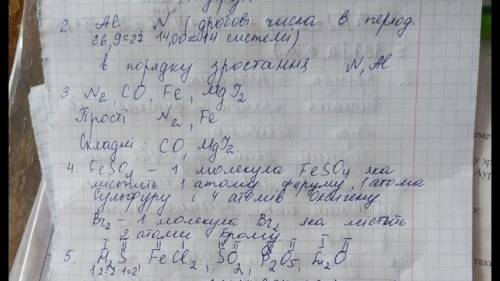 2. Al - N (дробові числа в період.
26,9=27 14,00=14 системі)
в порядку зростання: N, Al
3. N2, CO, Fe, MgI2
Прості: N2, Fe
Складні: CO, MgI2
4. FeSO4 - 1 молекула FeSO4 яка
містить 1 атом феруму, 1 атома
Сульфуру і 4 атомів Оксигену
Br2 - 1 молекула Br2 яка містить
2 атоми Брому
I II II I II II I II
5. H2S FeCl2, SO2, P2O5, O